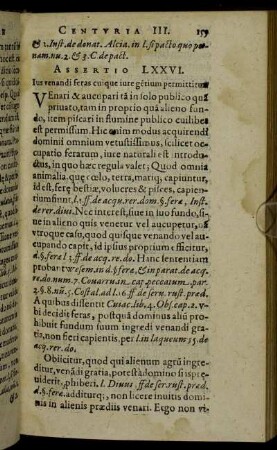 CENTVRIA III. 159
& 2. Inst. de donat. Alcia. in l. si pacto quo pœ-
nam. nu. 2. & 3. C. de pact.
ASSERTIO LXXVI.
Ius venandi feras cuique iure gētium permittitur
Venari & aucupari tā in solo publico quā
priuato, tam in proprio quā alieno fun-
do, item piscari in flumine publico cuilibet
est permissum. Hic enim modus acquirendi
dominii omnium vetustissimus, scilicet oc-
cupatio ferarum, iure naturali est introdu-
ctus, in quo hæc regula valet; Quod omnia
animalia, quæ cœlo, terra, mariq; capiuntur,
id est, feræ bestiæ, volucres & pisces, capien-
tium fiunt. l. 1. ff. de acqu. rer. dom. §. feræ, Inst.
de rer. diuis. Nec interest, siue in suo fundo, si-
ue in alieno quis venetur vel aucupetur, vt
vtroque casu, quod quisque venando vel au-
cupando capit, id ipsius proprium efficiatur.
d. §. feræ l. 3. ff. de acq. re. do. Hanc sententiam
probant
re. do. num. 7. Couarruu. in cap. peccatum. par.
2. §. 8. nu. 5. Costal. ad l. 16. ff. de seru. rust. præd.
A quibus dissentit Cuiac. lib. 4. Obs. cap. 2. v-
bi decidit feras, postquā dominus aliū pro-
hibuit fundum suum ingredi venandi gra-
tia, non fieri capientis, per l. in laqueum 55. de
acq. rer. do.
Obiicitur, quod qui alienum agrū ingre-
ditur, venādi gratia, potest à domino si is præ-
uiderit, phiberi. l. Diuus. ff. de ser. rust. præd.
d. §. feræ. additurq;, non licere inuitis domi-
nis in alienis prædiis venari. Ergo non vi-